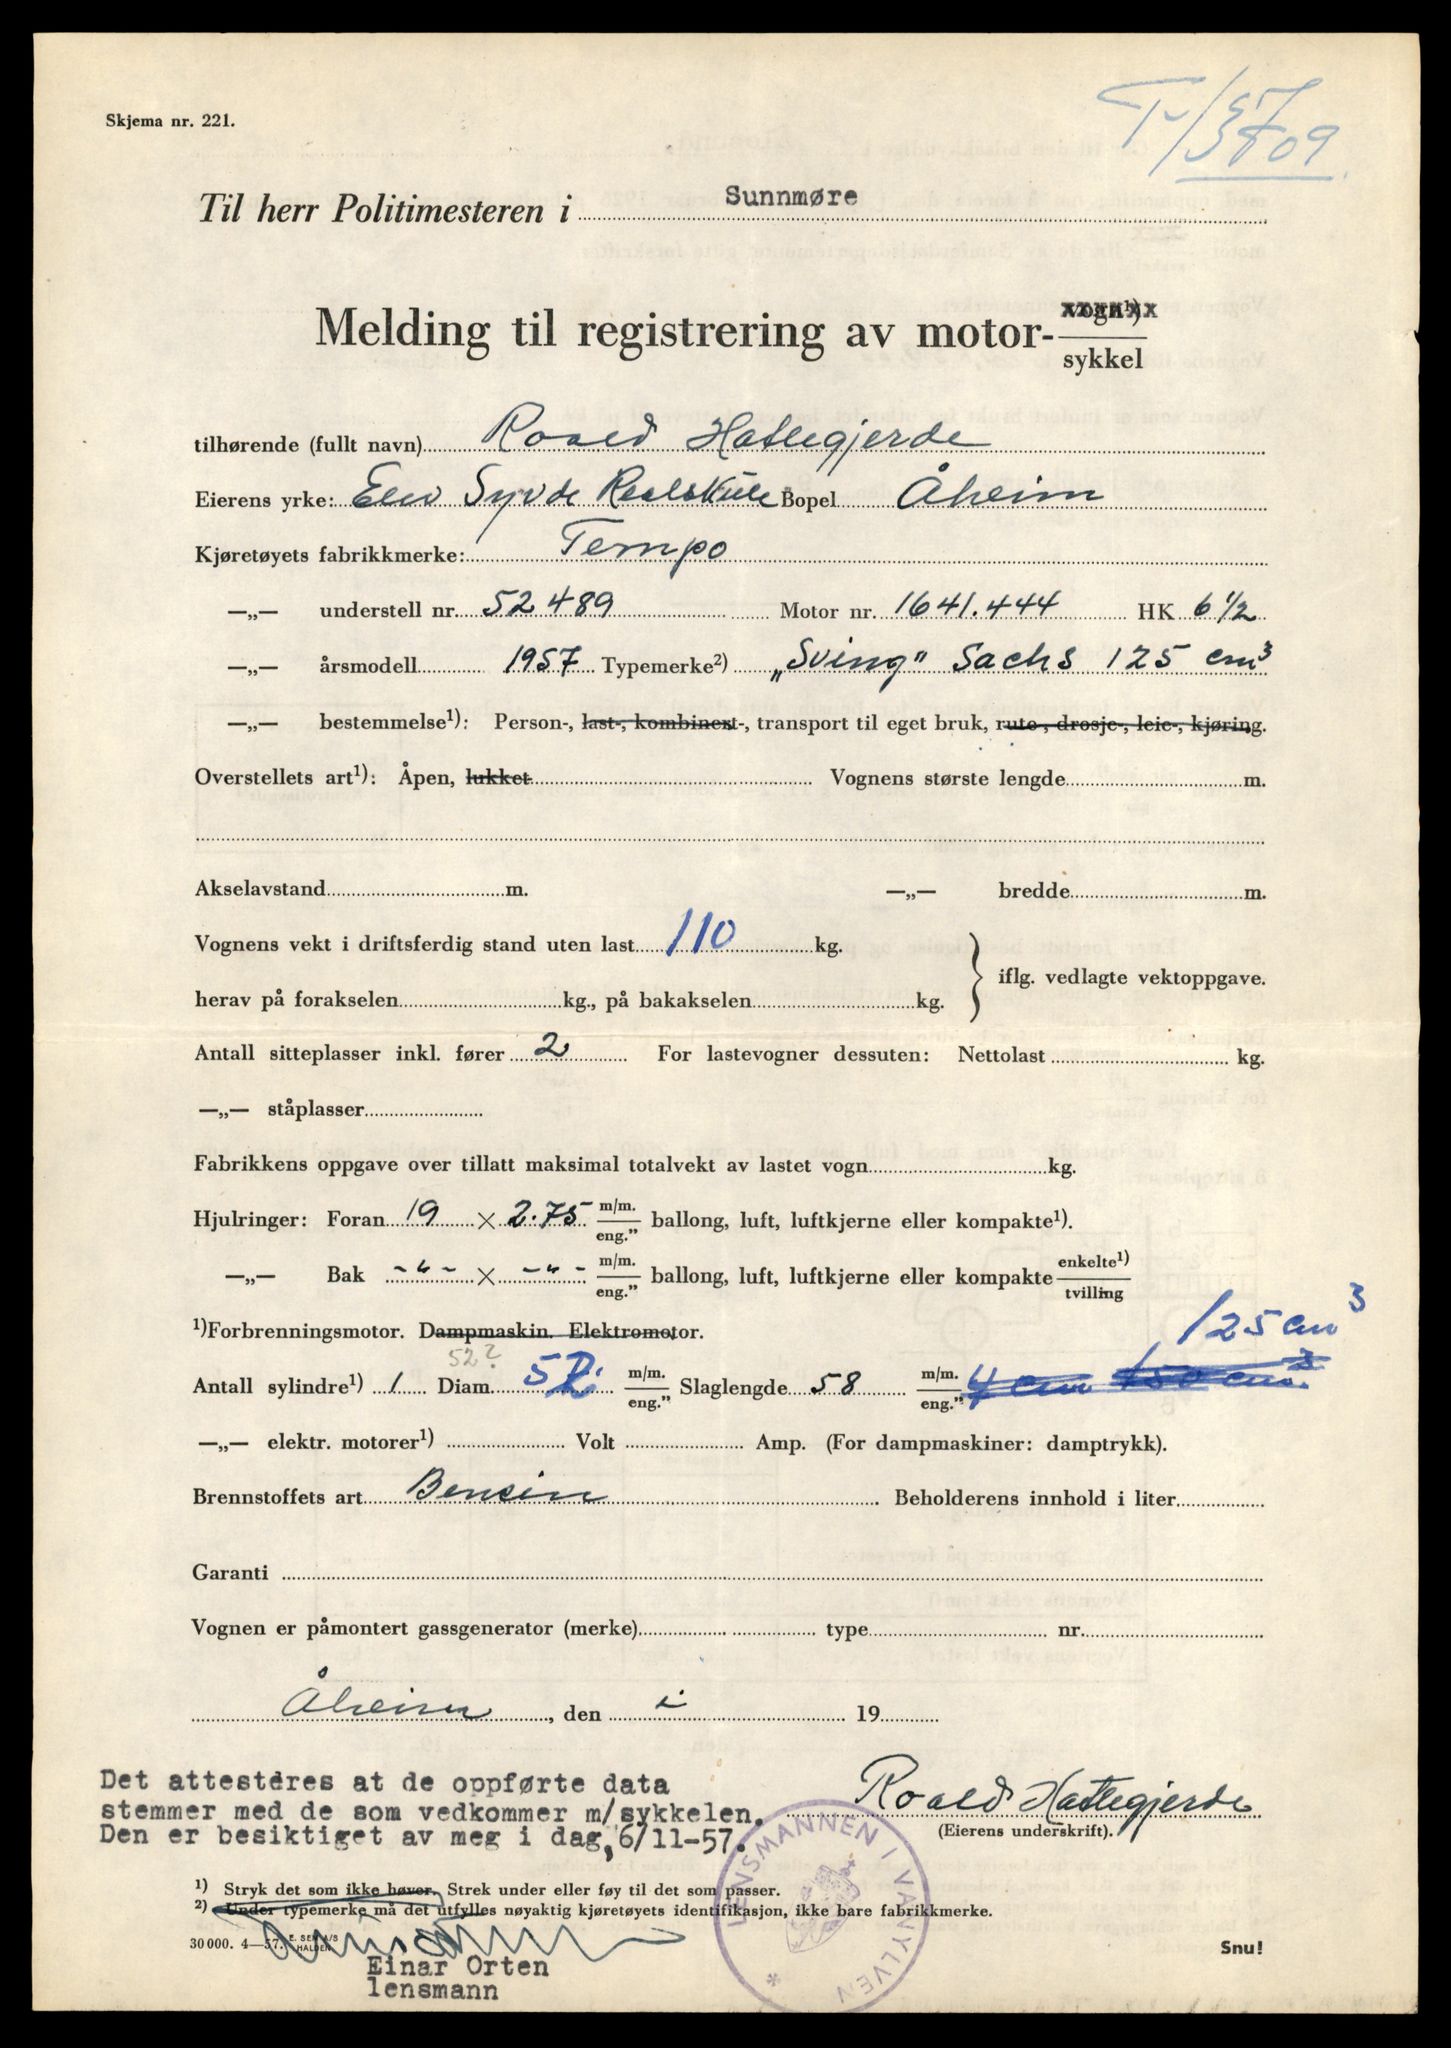 Skjema nr. 221.
T-/57
3809
Til herr Politimesteren i Sunnmøre
Melding til registrering av motor- vogn¹)
sykkel
tilhørende (fullt navn) Roald Hatlegjerde
Eierens yrke: Elev Syvde Realskule Bopel Åheim
Kjøretøyets fabrikkmerke: Tempo
—„— understell nr. 52489 Motor nr. 1641.444 HK 6 1/2
—„— årsmodell 1957 Typemerke²) „Sving" Sachs 125 cm³
—„— bestemmelse¹): Person-, last-, kombinert-, transport til eget bruk, rute-, drosje-, leie-, kjøring.
Overstellets art¹): Åpen, lukket Vognens største lengde m.
Akselavstand m. —„— bredde m.
Vognens vekt i driftsferdig stand uten last 110 kg.
herav på forakselen kg., på bakakselen kg. } iflg. vedlagte vektoppgave.
Antall sitteplasser inkl. fører 2 For lastevogner dessuten: Nettolast kg.
—„— ståplasser
Fabrikkens oppgave over tillatt maksimal totalvekt av lastet vogn kg.
Hjulringer: Foran 19 × 2.75 m/m. eng." ballong, luft, luftkjerne eller kompakte¹).
—„— Bak -"- × -"- m/m. eng." ballong, luft, luftkjerne eller kompakte enkelte¹) tvilling
¹)Forbrenningsmotor. Dampmaskin. Elektromotor.
125 cm³
52?
Antall sylindre¹) 1 Diam. 52 m/m. eng." Slaglengde 58 m/m. eng." 4 cm 150 cm³
—„— elektr. motorer¹) Volt Amp. (For dampmaskiner: damptrykk).
Brennstoffets art Bensin Beholderens innhold i liter
Garanti
Vognen er påmontert gassgenerator (merke) type nr.
Åheim, den i 19
Det attesteres at de oppførte data
stemmer med de som vedkommer m/sykkelen.
Den er besiktiget av meg i dag, 6/11-57.
Roald Hatlegjerde
(Eierens underskrift).
LENSMANNEN I VANYLVEN
¹) Stryk det som ikke høver. Strek under eller føy til det som passer.
²) Under typemerke må det utfylles nøyaktig kjøretøyets identifikasjon, ikke bare fabrikkmerke.
30 000. 4—57. E. SEM A/S HALDEN
Einar Orten
lensmann
Snu!